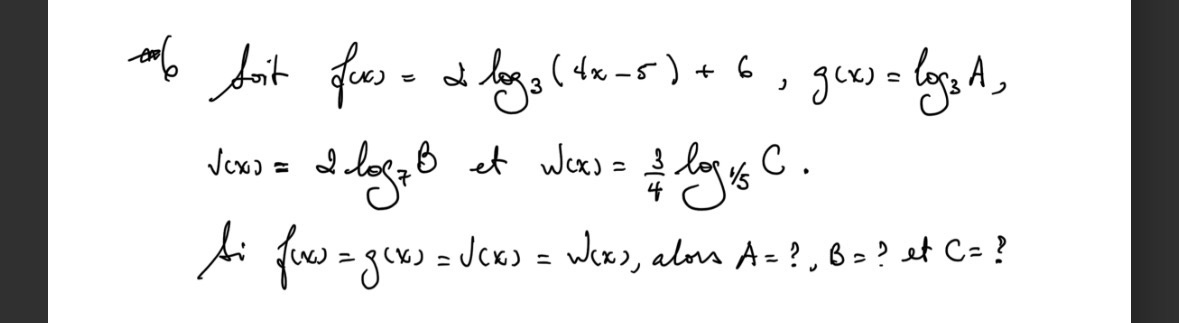 6 Soit f(x) = 2 log₃(4x-5) + 6, g(x) = log₃A,
V(x) = 2 log₇B et W(x) = 3/4 log₁/₅ C.
Si f(x) = g(x) = V(x) = W(x), alors A = ?, B = ? et C = ?